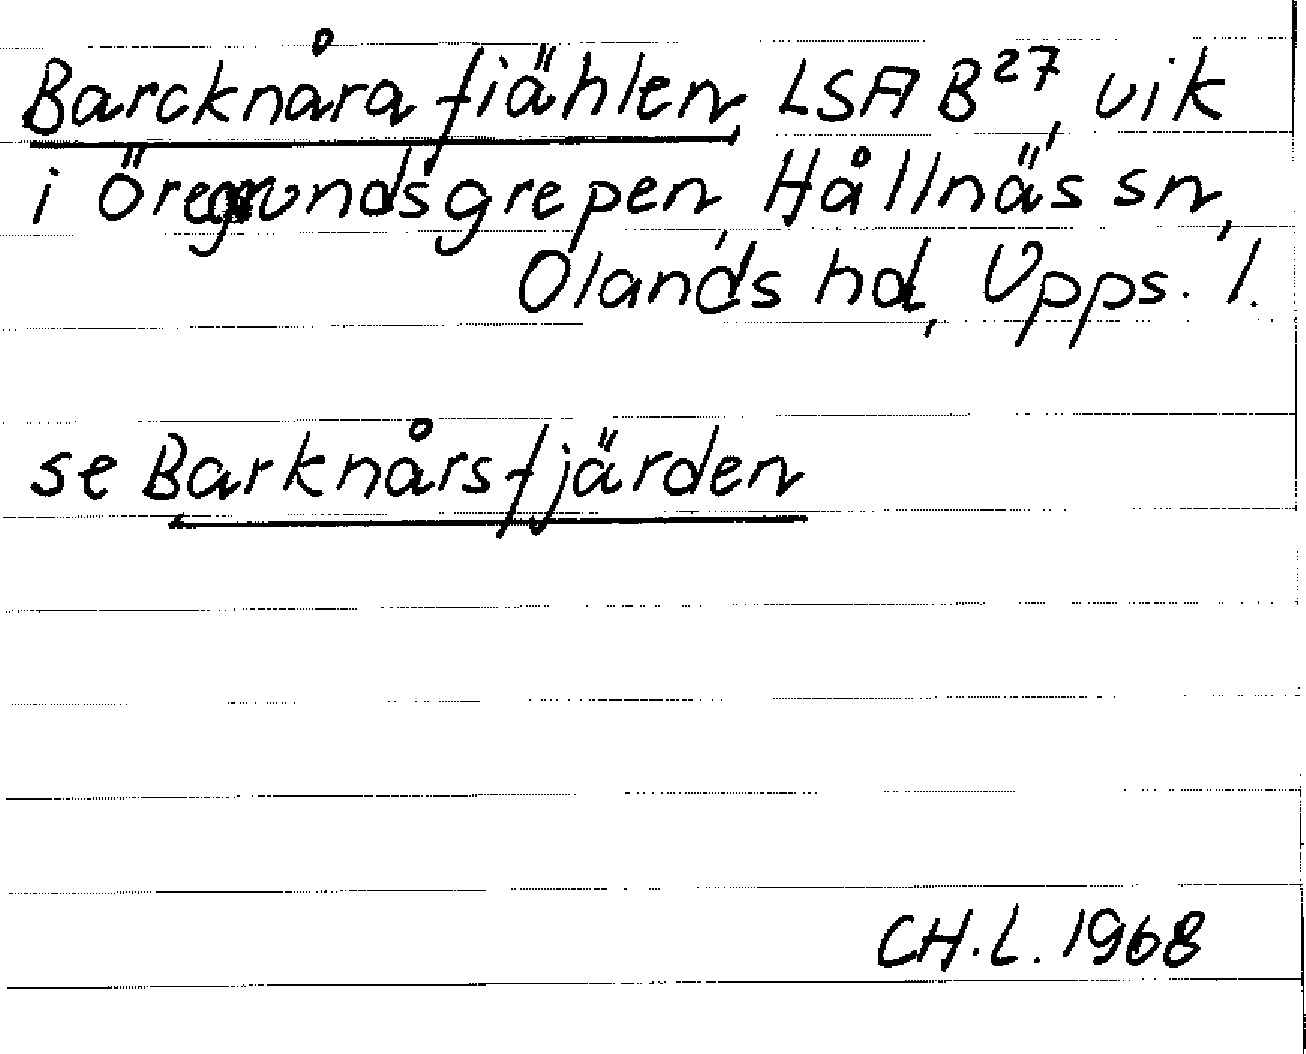 Barcknåra fiählen, LSA B27, vik
i Öregrundsgrepen, Hållnäs sn,
Olands hd, Upps. l.
se Barknårsfjärden
CH.L. 1968